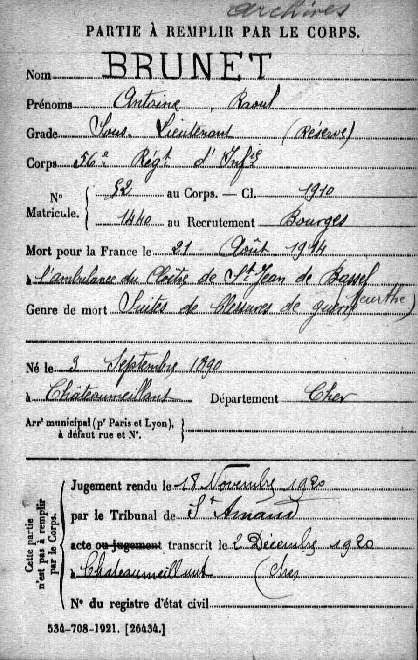 archives
PARTIE À REMPLIR PAR LE CORPS.
Nom BRUNET
Prénoms Antoine, Raoul
Grade Sous-Lieutenant (Réserve)
Corps 56e Régt d'Infie
No Matricule. { 52 au Corps. — Cl. 1910
1440 au Recrutement Bourges
Mort pour la France le 21 Août 1914
à l'ambulance du de St Jean de Bassel
Genre de mort Suites de blessures de guerre Meurthe)
Né le 3 Septembre 1890
à Châteaumeillant Département Cher
Arrt municipal (pr Paris et Lyon), à défaut rue et No. }
Cette partie n'est pas à remplir par le Corps.
Jugement rendu le 18 Novembre 1920
par le Tribunal de St Amand
acte ou jugement transcrit le 2 Décembre 1920
à Chateaumeillant (Cher
No du registre d'état civil
534-708-1921. [26434.]